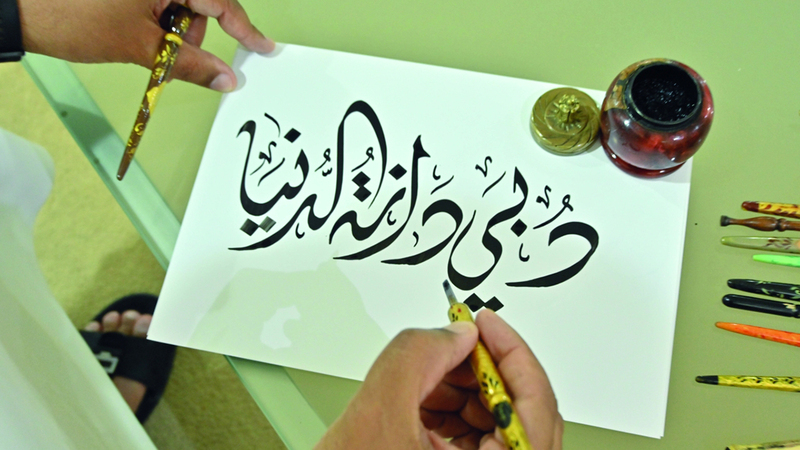 دُبَي دَانَةُ الدُّنيَا